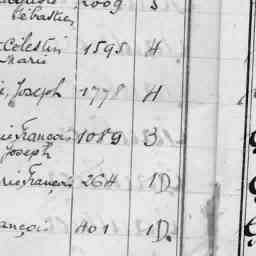 2009 5
Sébastien
Célestin 1595 4
Marie
Joseph 1778 4
François 1089 3
Joseph
François 264 1D.
ançois 401 1D.